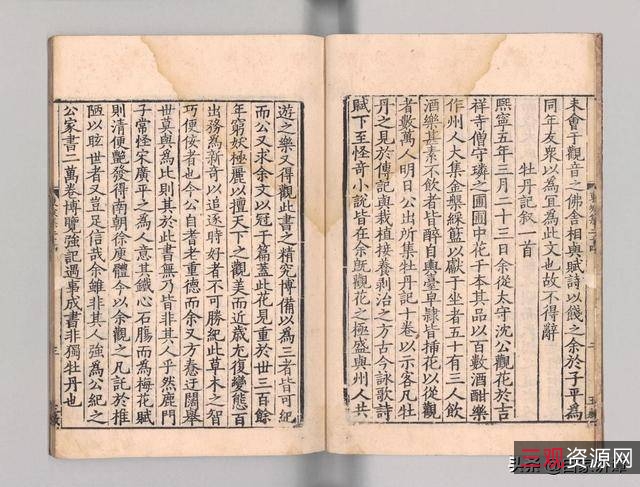 未會于觀音之佛舍相與賦詩以餞之余於子平爲
同年友衆以爲宜爲此文也故不得辭
牡丹記叙一首
熙寧五年三月二十三日余從太守沈公觀花於吉
祥寺僧守璘之圃圃中花千本其品以百數酒酣樂
作州人大集金槃綵籃以獻于坐者五十有三人飲
酒樂甚素不飲者皆醉自輿臺皁隸皆插花以從觀
者數萬人明日公出所集牡丹記十卷以示客凡牡
丹之見於傳記與栽植接養剥治之方古今詠歌詩
賦下至怪奇小說皆在余既觀花之極盛與州人共
遊之樂又得觀此書之精究博備以爲三者皆可紀
而公又求余文以冠于篇蓋此花見重於世三百餘
年窮妖極麗以擅天下之觀美而近歲尤復變態百
出務爲新奇以追逐時好者不可勝紀此草木之智
巧便佞者也今公自耆老重德而余又方蠢迂闊舉
世莫與爲比則其於此書無乃皆非其人乎然鹿門
子常怪宋廣平之爲人意其鐵心石膓而爲梅花賦
則清便艷發得南朝徐庾體今以余觀之凡託於椎
陋以眩世者又豈足信哉余雖非其人強爲公紀之
公家書二萬卷博覽強記遇事成書非獨牡丹也
三观资源网